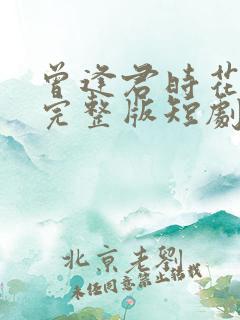 曾逢君時花
完整版短劇
北京老劉
未经同意禁止转载